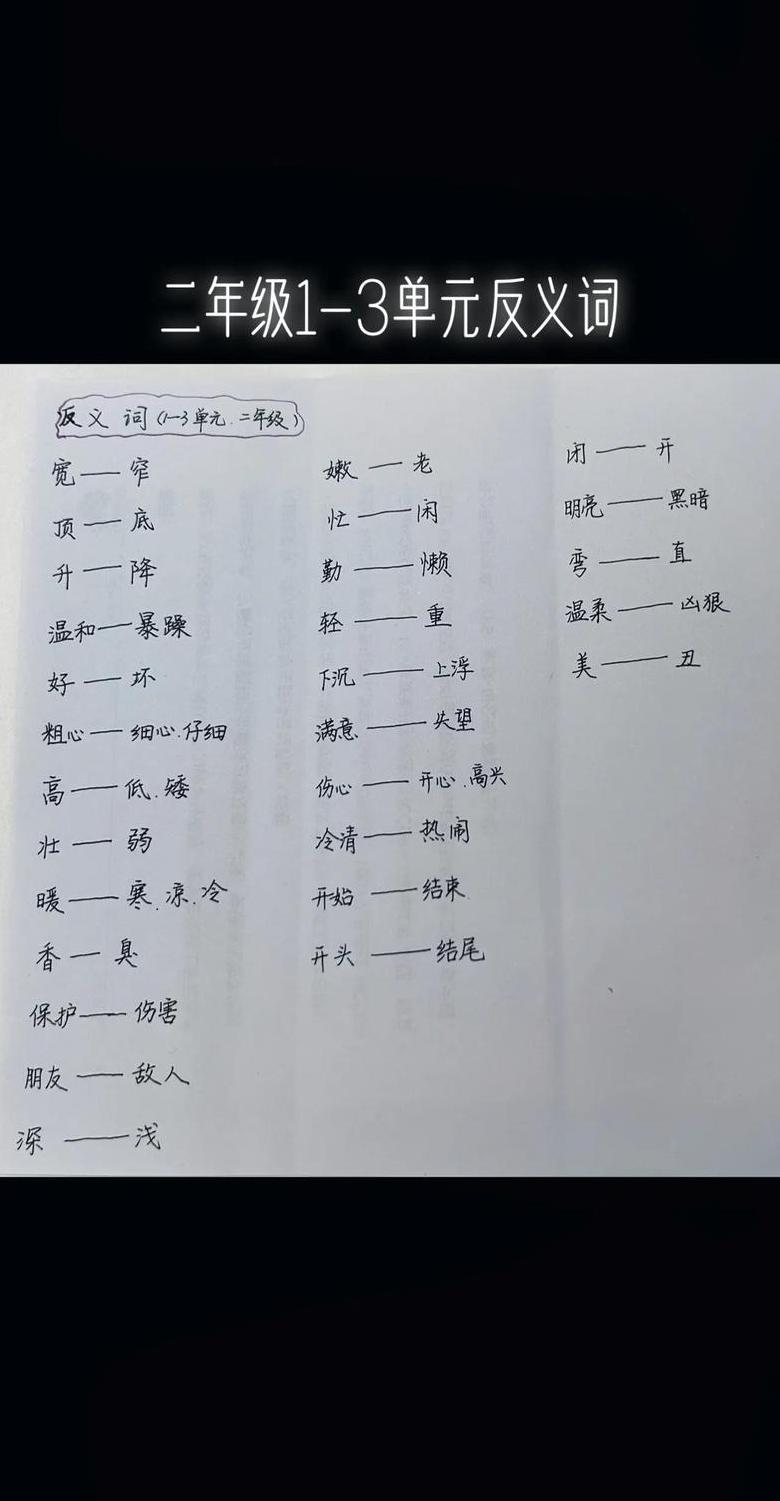 二年级1-3单元反义词
反义词(1-3单元.二年级)
宽——窄
顶——底
升——降
温和——暴躁
好——坏
粗心——细心.仔细
高——低.矮
壮——弱
暖——寒.凉.冷
香——臭
保护——伤害
朋友——敌人
深——浅
嫩——老
忙——闲
勤——懒
轻——重
下沉——上浮
满意——失望
伤心——开心.高兴
冷清——热闹
开始——结束
开头——结尾
闭——开
明亮——黑暗
弯——直
温柔——凶狠
美——丑